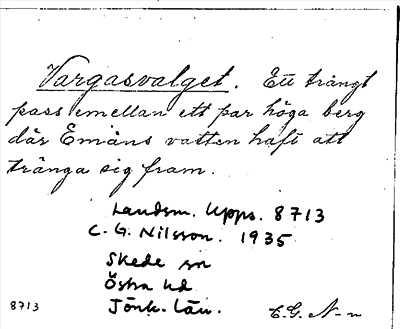 Vargasvalget. Ett trångt
pass emellan ett par höga berg
där Emåns vatten haft att
tränga sig fram.
Landsm. Upps. 8713
C. G. Nilsson. 1935
Skede sn
Östra hd
Jönk. län.
8713 C.G. N-n